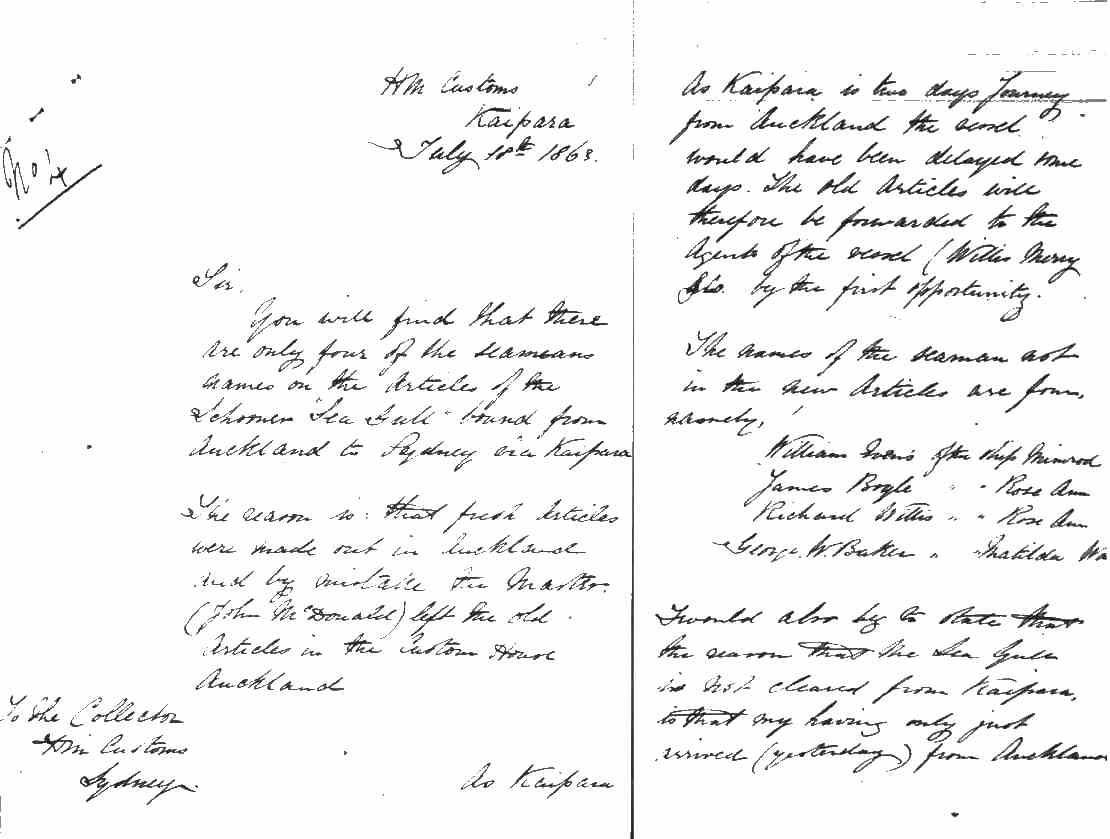 No 4
HM Customs
Kaipara
July 18th 1863.
Sir,
You will find that there
are only four of the seamens
names on the Articles of the
Schooner "Sea Gull" bound from
Auckland to Sydney via Kaipara
The reason is: that fresh Articles
were made out in Auckland
and by mistake the Master.
(John McDonald) left the old
Articles in the Custom House
Auckland
To the Collector
Hm Customs
Sydney.
As Kaipara
As Kaipara is two days Journey
from Auckland the vessel
would have been delayed some
days. The old Articles will
therefore be forwarded to the
Agents of the vessel (Willis Merry
&Co. by the first opportunity.
The names of the seaman not
in the new Articles are four,
namely,
William Evens of the ship Mimrod
James Bogle " " Rose Ann
Richard Willis " " Rose Ann
George. W. Baker " Matilda Wa
I would also beg to state that
the reason that the Sea Gull
is not cleared from Kaipara,
is that my having only just
arrived (yesterday) from Auckland